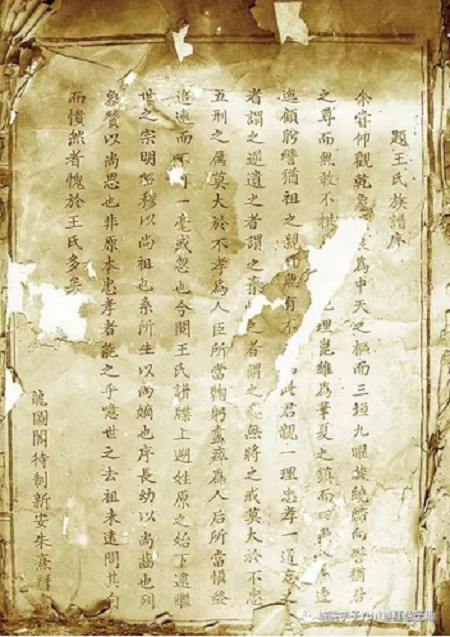 題王氏族譜序
余嘗仰觀乾象 為中天之樞而三垣九曜旋繞 向 猶君
之尊而無敢不拱 地理崑維為華夏之鎮而 逶
迤顧 猶祖之親而無有不 此君親一理忠孝一道
者謂之逆遺之者謂之 之者謂之 無將之戒莫大於不忠
五刑之属莫大於不孝為人臣所當鞠躬盡瘁為人后所當慎終
追遠而不可一毫或忽也今閱王氏譜牒上遡姓原之始下逮繼
世之宗明昭穆以尚祖也系所生以尚嫡也序長幼以尚齒也列
像贊以尚思也非原本忠孝者能之乎噫世之去祖未遠問其自
而憒然者愧於王氏多矣
龍圖閣待制新安朱熹拜